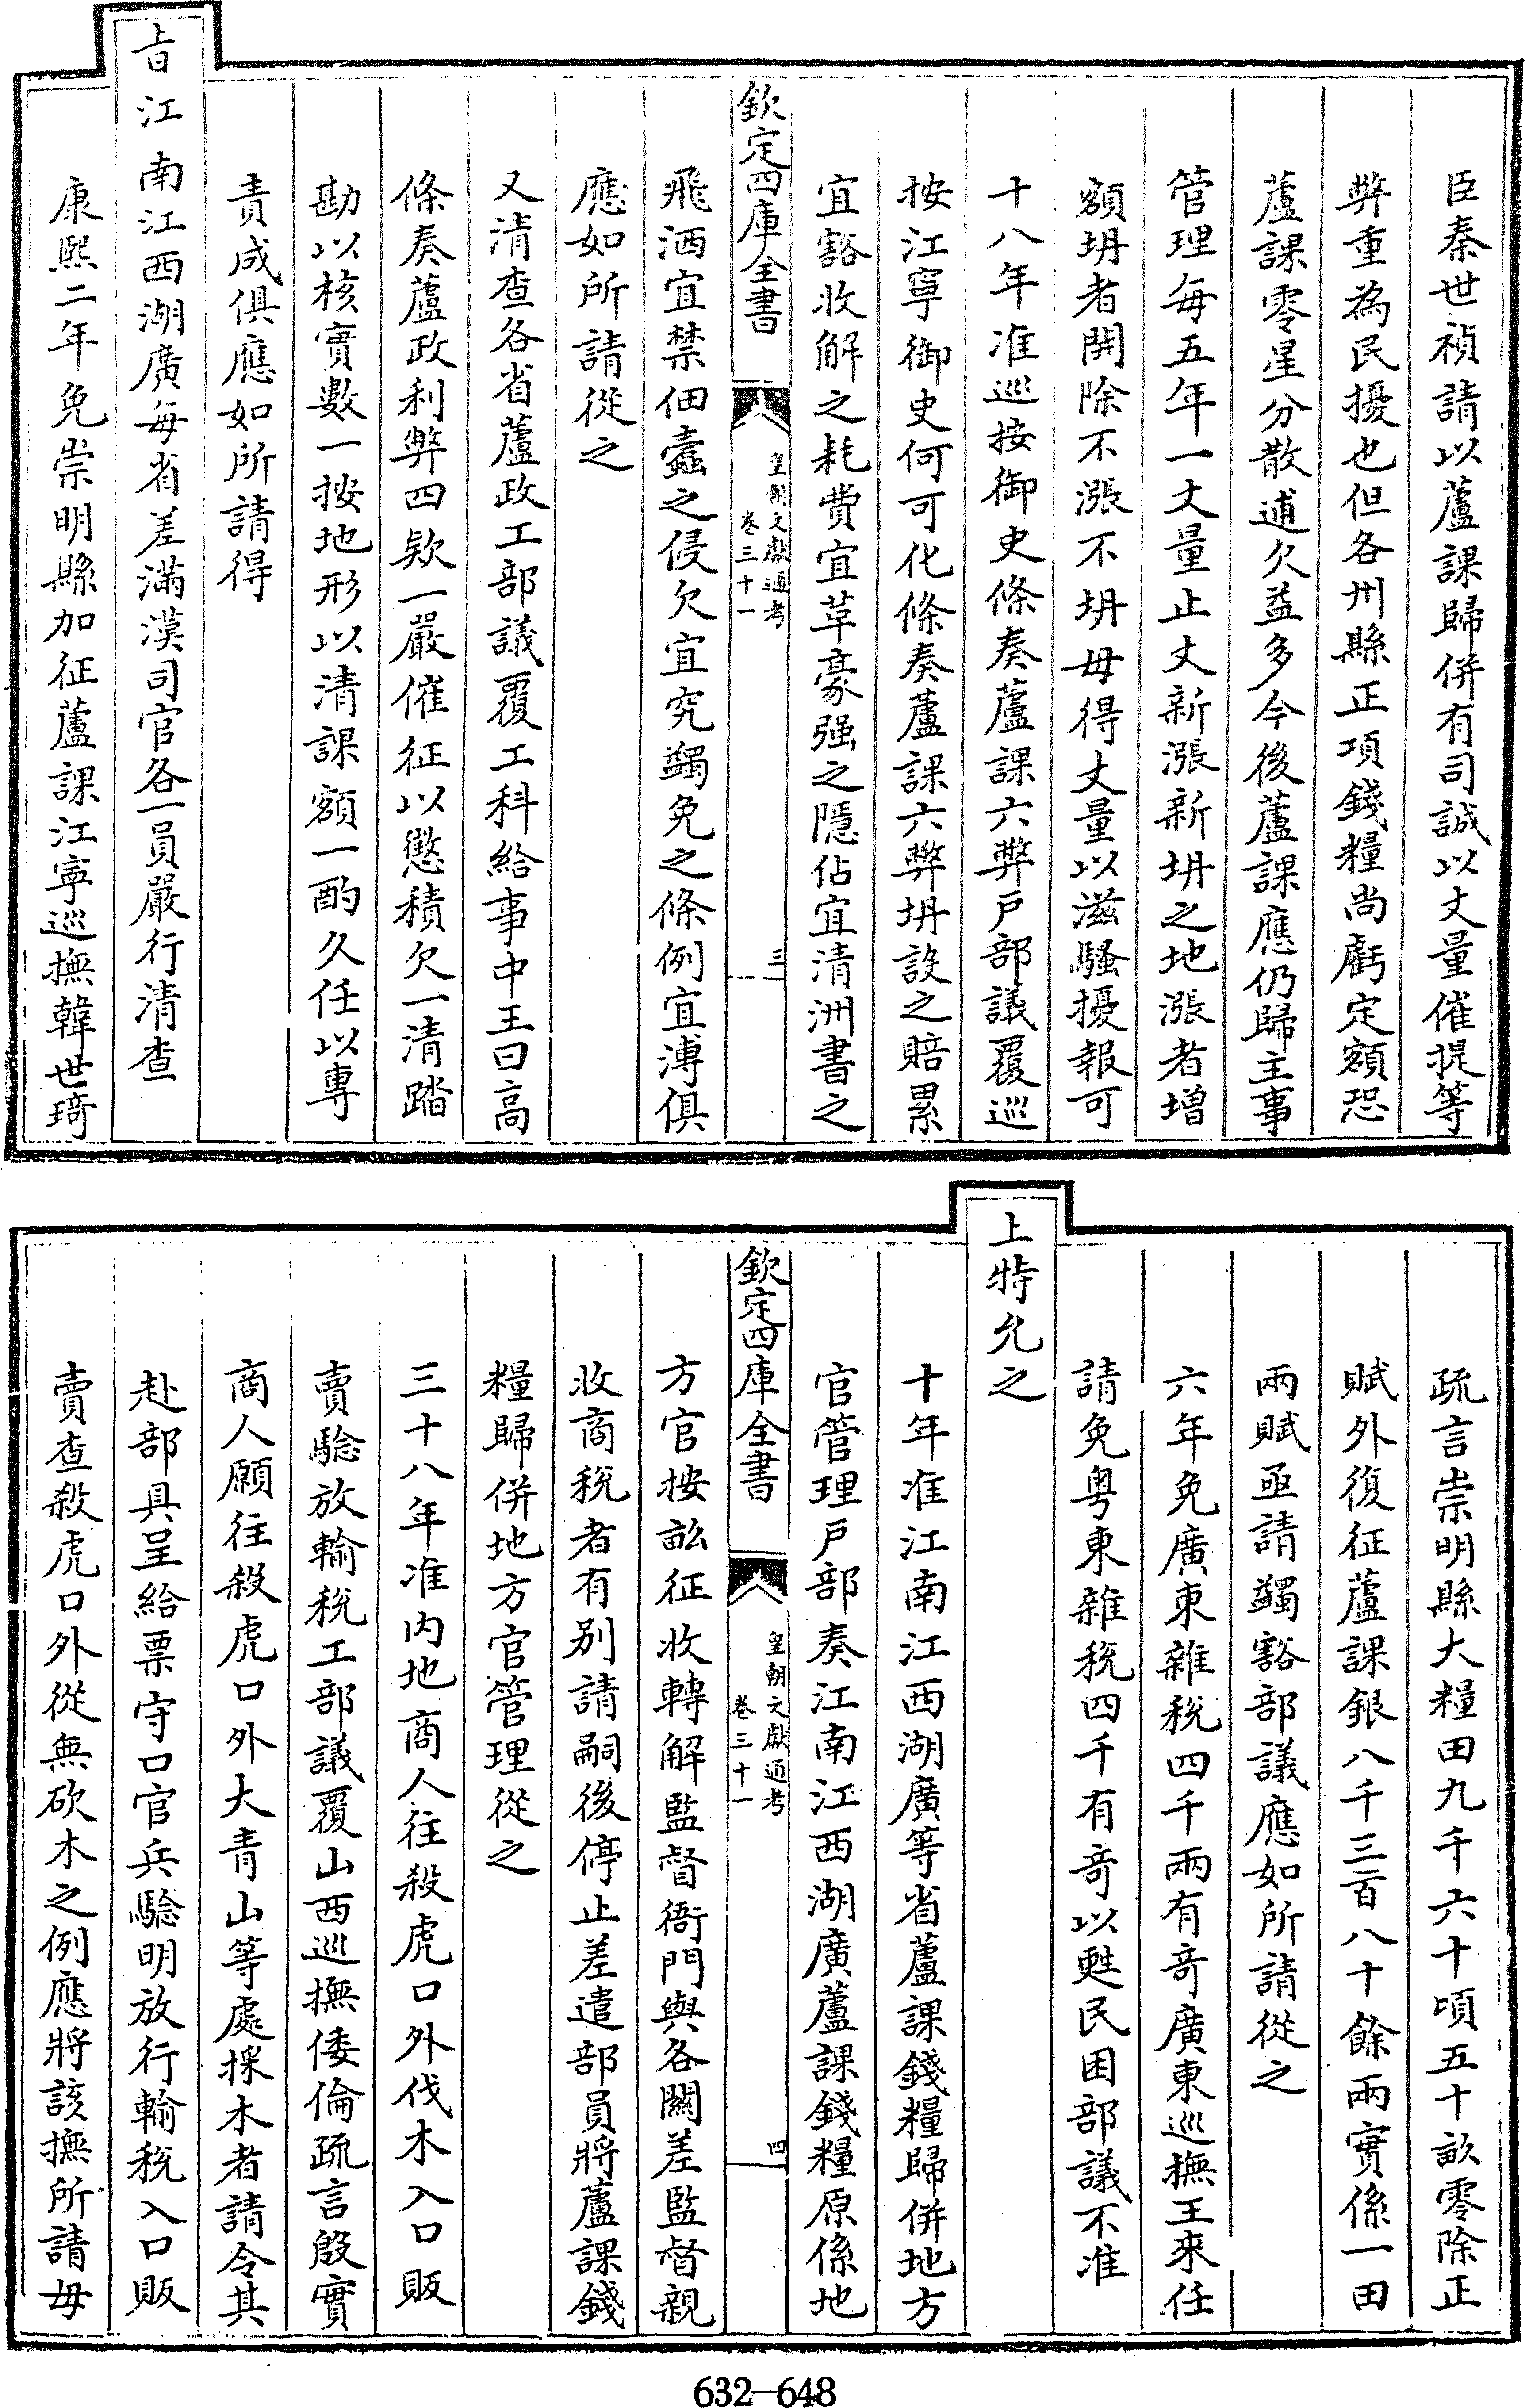 臣秦世禎請以蘆課歸併有司誠以丈量催提等
弊重為民擾也但各州縣正項錢糧尚虧定額恐
蘆課零星分散逋欠益多今後蘆課應仍歸主事
管理毎五年一丈量止丈新漲新坍之地漲者增
額坍者開除不漲不坍毋得丈量以滋騷擾報可
十八年准巡按御史條奏蘆課六弊戶部議覆巡
按江寧御史何可化條奏蘆課六弊坍設之賠累
宜豁收解之耗費宜草豪强之隱佔宜清洲書之
欽定四庫全書
皇朝文獻通考
卷三十一
三
飛洒宜禁佃蠹之侵欠宜究蠲免之條例宜溥俱
應如所請從之
又清查各省蘆政工部議覆工科給事中王曰高
條奏蘆政利弊四欵一嚴催征以懲積欠一清踏
勘以核實數一按地形以清課額一酌久任以專
責成俱應如所請得
旨江南江西湖廣每省差滿漢司官各一員嚴行清查
康熙二年免崇明縣加征蘆課江寧巡撫韓世琦
疏言崇明縣大糧田九千六十頃五十畝零除正
賦外復征蘆課銀八千三百八十餘兩實係一田
兩賦亟請蠲豁部議應如所請從之
六年免廣東雜稅四千兩有竒廣東巡撫王來任
請免粤東雜稅四千有竒以甦民困部議不准
上特允之
十年准江南江西湖廣等省蘆課錢糧歸併地方
官管理戶部奏江南江西湖廣蘆課錢糧原係地
欽定四庫全書
皇朝文獻通考
卷三十一
四
方官按畝征收轉解監督衙門與各關差監督親
收商稅者有别請嗣後停止差遣部員將蘆課錢
糧歸併地方官管理從之
三十八年准内地商人往殺虎口外伐木入口販
賣驗放輸稅工部議覆山西巡撫倭倫疏言殷實
商人願往殺虎口外大青山等處採木者請令其
赴部具呈給票守口官兵驗明放行輸稅入口販
賣查殺虎口外從無砍木之例應將該撫所請毋
632-648